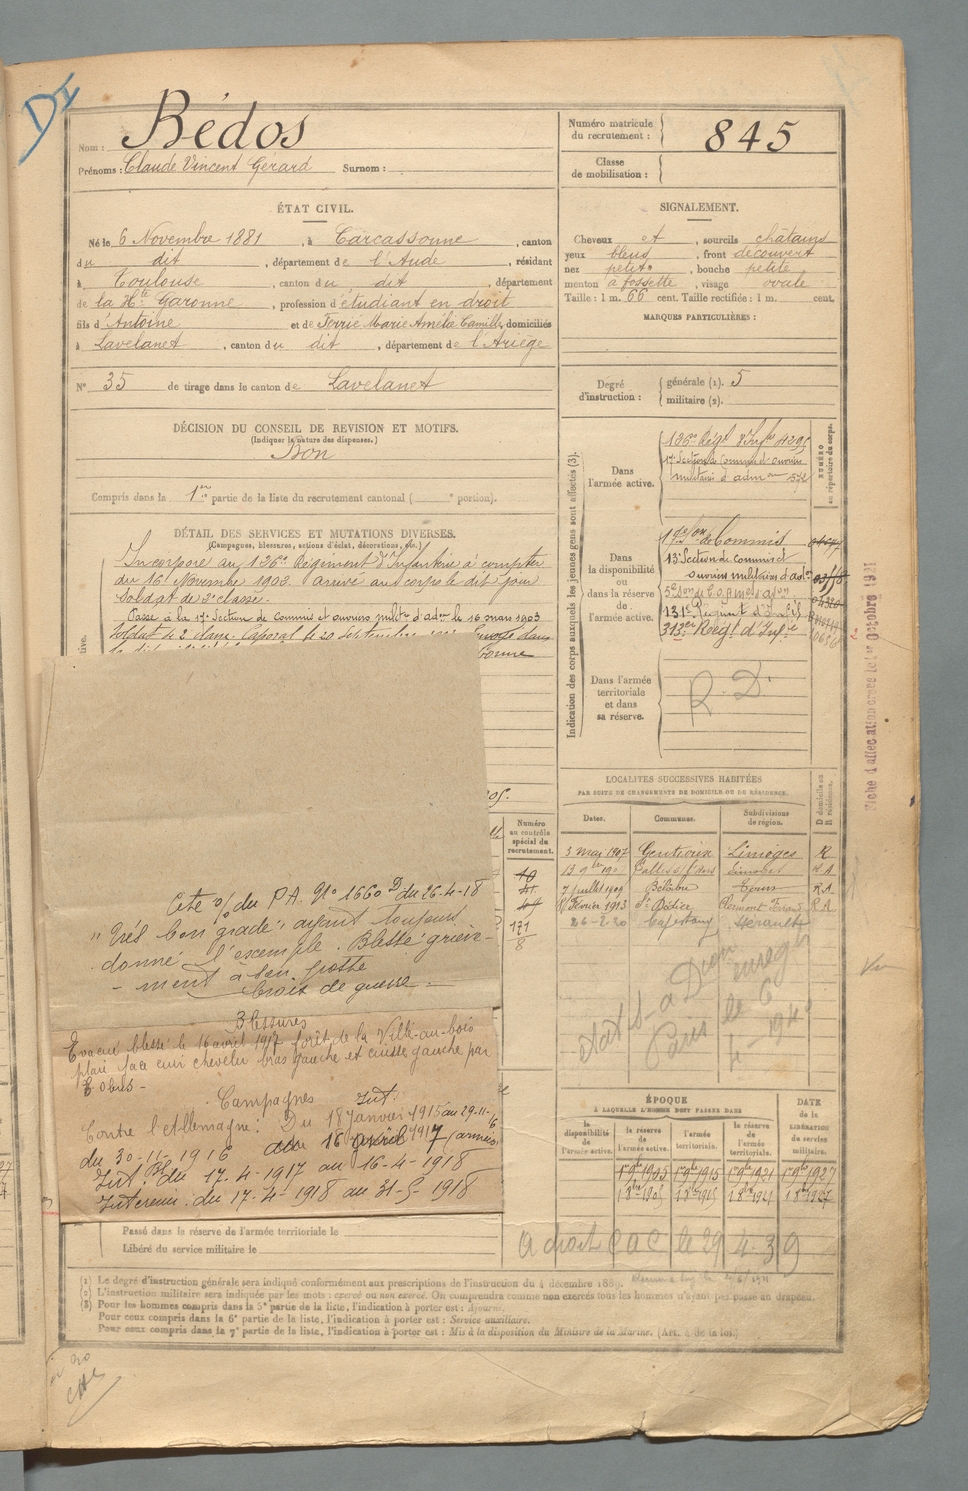 DI
Nom : Bédos
Prénoms : Claude Vincent Gerard Surnom :
Numéro matricule du recrutement : 845
Classe de mobilisation :
ÉTAT CIVIL.
Né le 6 Novembre 1881, à Carcassonne, canton
du dit, département de l'Aude, résidant
à Toulouse, canton du dit, département
de la Hte Garonne, profession d'étudiant en droit
fils d'Antoine et de Ferrié Marie Amélie Camille, domiciliés
à Lavelanet, canton du dit, département de l'Ariège
N° 35 de tirage dans le canton de Lavelanet
SIGNALEMENT.
Cheveux et, sourcils châtains
yeux bleus, front découvert
nez petit, bouche petite
menton à fossette, visage ovale
Taille : 1 m. 66 cent. Taille rectifiée : 1 m. cent.
MARQUES PARTICULIÈRES :
Degré d'instruction : générale (1). 5
militaire (2).
DÉCISION DU CONSEIL DE REVISION ET MOTIFS.
(Indiquer la nature des dispenses.)
Bon
Compris dans la 1re partie de la liste du recrutement cantonal ( e portion).
DÉTAIL DES SERVICES ET MUTATIONS DIVERSES.
(Campagnes, blessures, actions d'éclat, décorations, etc.)
Incorporé au 126e Régiment d'Infanterie à compter
du 16 Novembre 1902 arrivé au corps le dit jour
soldat de 2e classe.
Passé à la 17e Section de Commis et ouvriers milit. d'adon le 16 mars 1903
Soldat de 2e classe. Caporal le 20 Septembre
Indication des corps auxquels les jeunes gens sont affectés (3).
NUMÉRO au répertoire du corps.
Dans l'armée active.
126e Régt d'Infie
17e Section de Commis et ouvriers
militaires d'adm
Dans la disponibilité ou dans la réserve de l'armée active.
de Commis
13e Section de commis et
ouvriers militaires d'adon
313e Regt d'Infie
Dans l'armée territoriale et dans sa réserve.
R. D.
Fiche d'affectation créée le 1er Octobre 1921
LOCALITÉS SUCCESSIVES HABITÉES
PAR SUITE DE CHANGEMENTS DE DOMICILE OU DE RÉSIDENCE.
D domicile ou R résidence.
Dates. Communes. Subdivisions de région.
3 mai 1907 Gentioux Limoges R
7 juillet 1909 Bélâbre Tours R A
Février 1913 St Didier Clermont Ferrand R A
26-2-20 Capestang Hérault
Numéro au contrôle spécial du recrutement.
171
8
Paris le 6
1940
Cité o/ du P.A. N° 166 D du 26-4-18
"Très bon gradé, ayant toujours
donné l'exemple. Blessé griève-
-ment à son poste
Croix de guerre.
Blessures
Evacué blessé le 16 avril 1917 forêt de la Ville-au-bois
plaie face cuir chevelu bras gauche et cuisse gauche par
E. obus -
Campagnes
Contre l'Allemagne : Int. Du 18 Janvier 1915 au 29-11-16
du 30-11-1916 au 16 avril 1917 (armées)
Int. Bl. du 17.4-1917 au 16-4-1918
Intérieur. du 17-4-1918 au 31-5-1918
ÉPOQUE
À LAQUELLE L'HOMME DOIT PASSER DANS
DATE de la LIBÉRATION du service militaire.
la disponibilité de l'armée active. la réserve de l'armée active. l'armée territoriale. la réserve de l'armée territoriale.
1 9bre 1905 1 9bre 1915 1 9bre 1921 1 9bre 1927
Passé dans la réserve de l'armée territoriale le
Libéré du service militaire le
a droit C a C le 29 4.39
(1) Le degré d'instruction générale sera indiqué conformément aux prescriptions de l'instruction du 4 décembre 1889.
(2) L'instruction militaire sera indiquée par les mots : exercé ou non exercé. On comprendra comme non exercés tous les hommes n'ayant pas passé au drapeau.
(3) Pour les hommes compris dans la 5e partie de la liste, l'indication à porter est : Ajourné.
Pour ceux compris dans la 6e partie de la liste, l'indication à porter est : Service auxiliaire.
Pour ceux compris dans la 7e partie de la liste, l'indication à porter est : Mis à la disposition du Ministre de la Marine. (Art. 4 de la loi.)